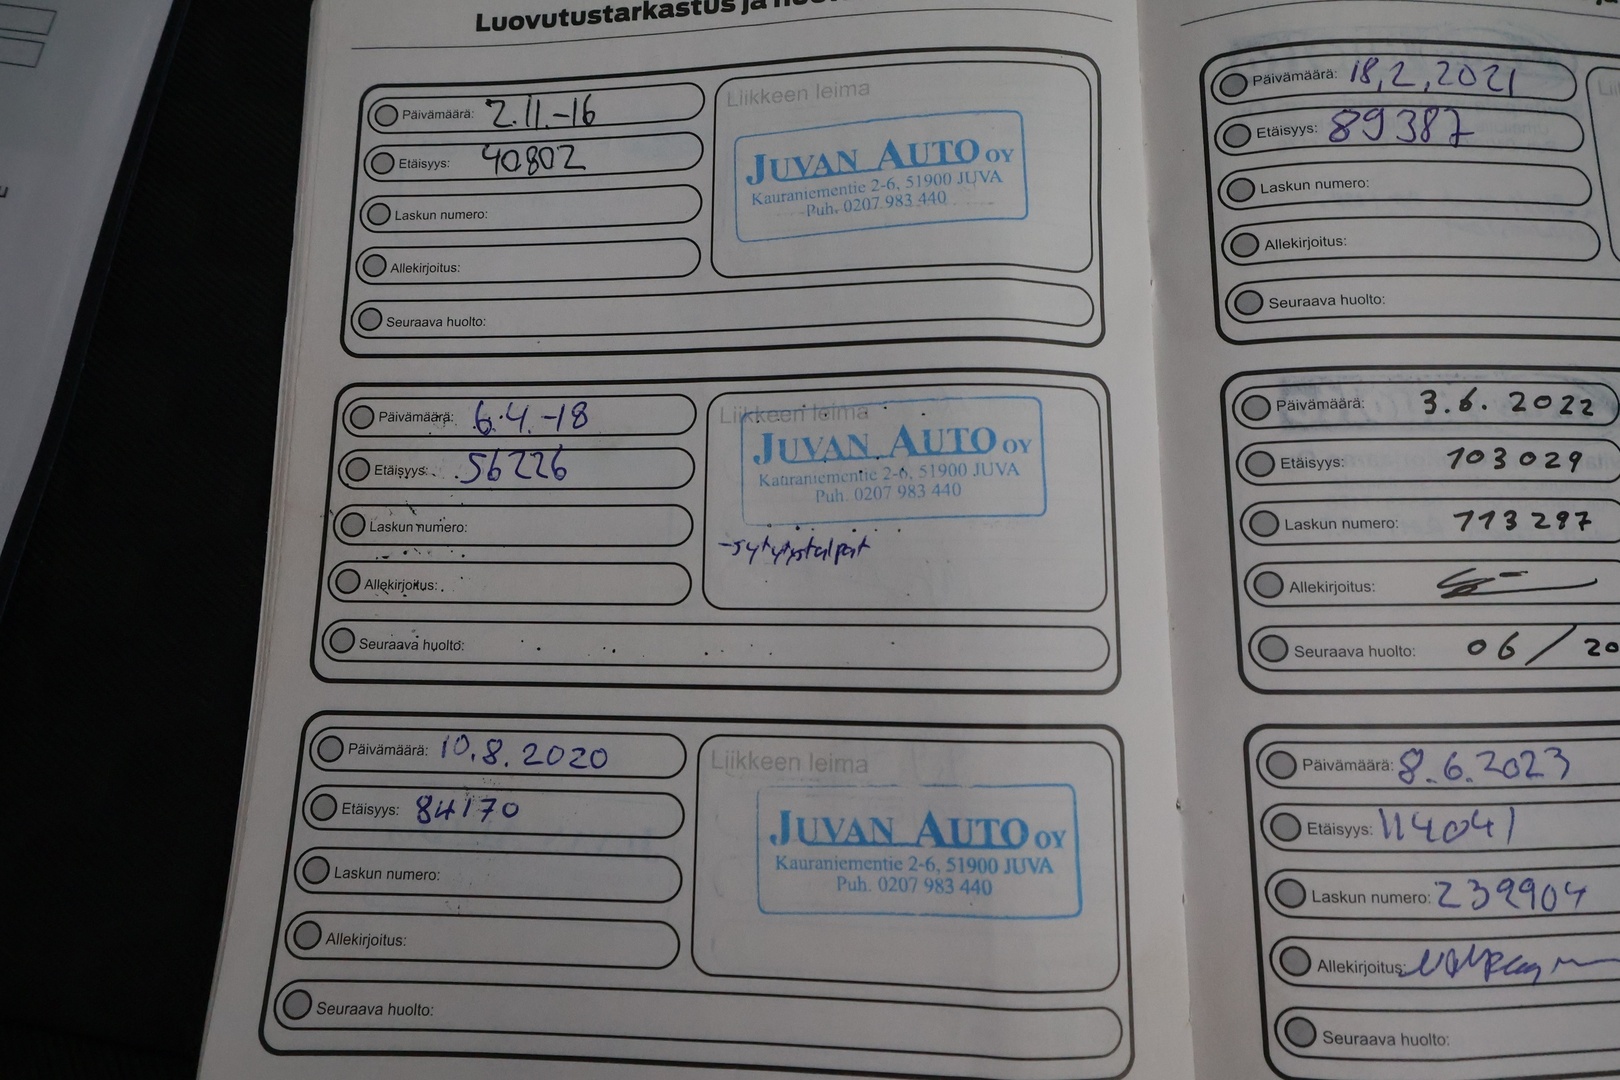 Luovutustarkastus ja
Päivämäärä: 2.11.-16
Etäisyys: 40802
Laskun numero:
Allekirjoitus:
Seuraava huolto:
Liikkeen leima
JUVAN AUTO OY
Kauraniementie 2-6, 51900 JUVA
Puh. 0207 983 440
Päivämäärä: 6.4.-18
Etäisyys: 56226
Laskun numero:
Allekirjoitus:
Seuraava huolto:
Liikkeen leima
JUVAN AUTO OY
Kauraniementie 2-6, 51900 JUVA
Puh. 0207 983 440
-sytytystulpat
Päivämäärä: 10.8.2020
Etäisyys: 84170
Laskun numero:
Allekirjoitus:
Seuraava huolto:
Liikkeen leima
JUVAN AUTO OY
Kauraniementie 2-6, 51900 JUVA
Puh. 0207 983 440
Päivämäärä: 18.2.2021
Etäisyys: 89387
Laskun numero:
Allekirjoitus:
Seuraava huolto:
Päivämäärä: 3.6.2022
Etäisyys: 103029
Laskun numero: 113297
Allekirjoitus:
Seuraava huolto: 06/20
Päivämäärä: 8.6.2023
Etäisyys: 114041
Laskun numero: 239904
Allekirjoitus:
Seuraava huolto: